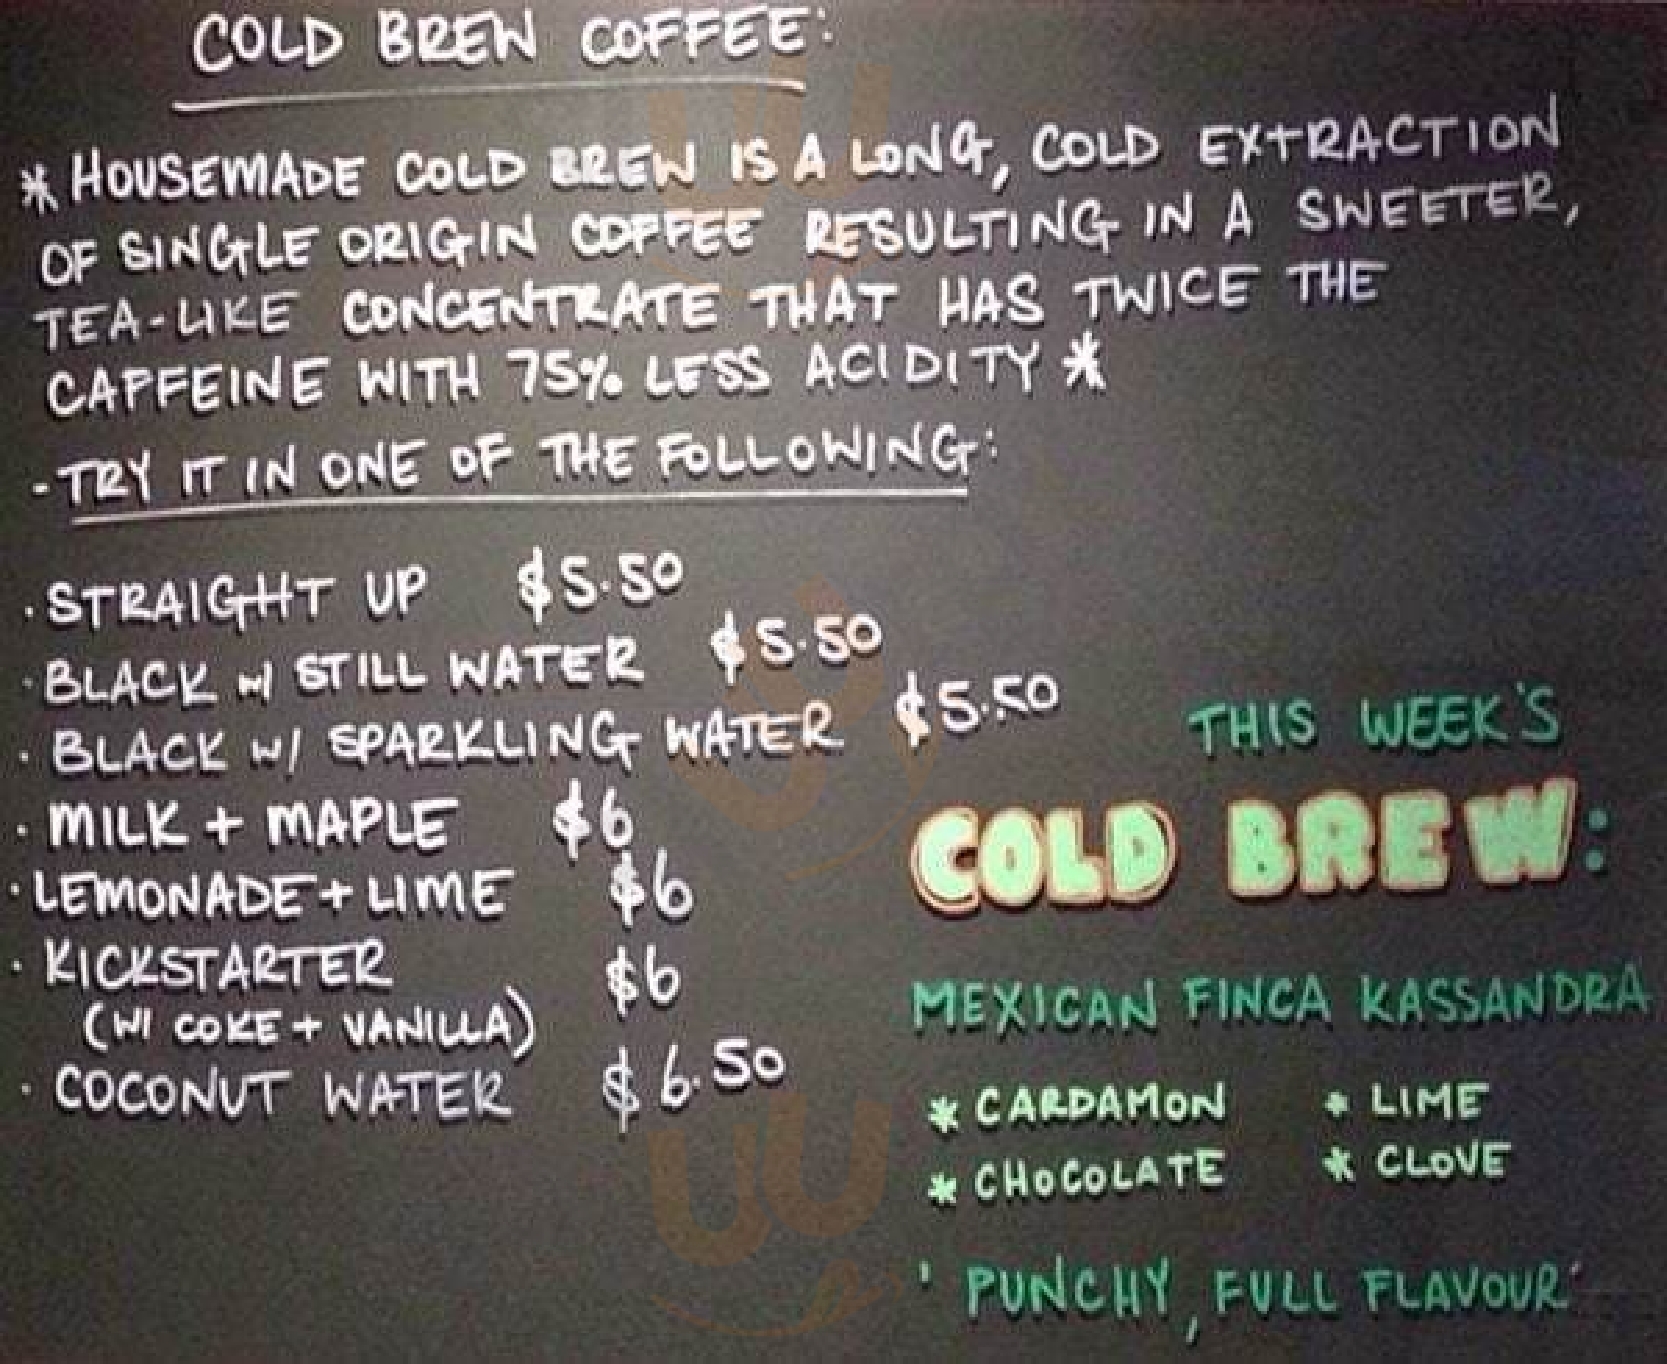 COLD BREW COFFEE:
* HOUSEMADE COLD BREW IS A LONG, COLD EXTRACTION
OF SINGLE ORIGIN COFFEE RESULTING IN A SWEETER,
TEA-LIKE CONCENTRATE THAT HAS TWICE THE
CAFFEINE WITH 75% LESS ACIDITY *
- TRY IT IN ONE OF THE FOLLOWING:
· STRAIGHT UP $5.50
· BLACK W/ STILL WATER $5.50
· BLACK W/ SPARKLING WATER $5.50
· MILK + MAPLE $6
· LEMONADE + LIME $6
· KICKSTARTER $6
(W/ COKE + VANILLA)
· COCONUT WATER $6.50
THIS WEEK'S
COLD BREW:
MEXICAN FINCA KASSANDRA
* CARDAMON * LIME
* CHOCOLATE * CLOVE
' PUNCHY, FULL FLAVOUR'